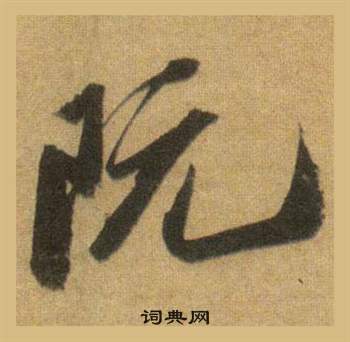 阮
词典网